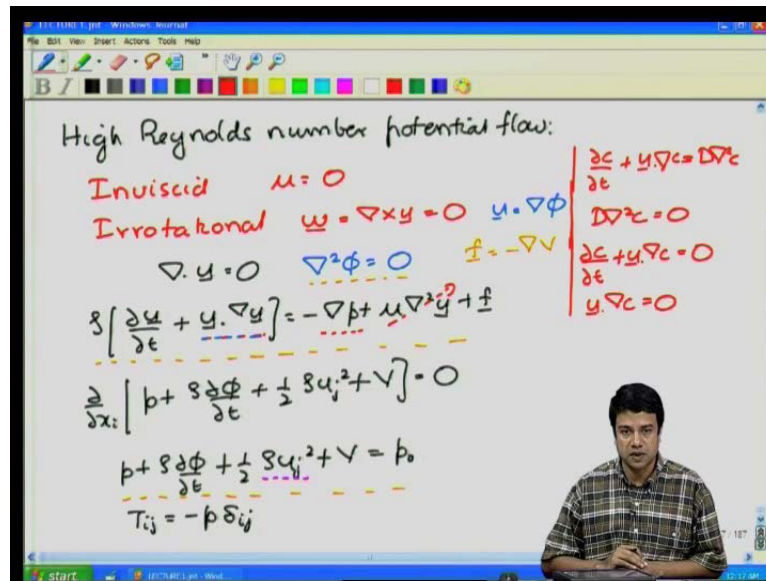 LECTURE1.jnt - Windows Journal
File Edit View Insert Actions Tools Help
B I
High Reynolds number potential flow:
Inviscid μ = 0
Irrotational ω = ∇×u = 0 u = ∇φ
∇.u = 0 ∇²φ = 0 f = -∇V
ρ[∂u/∂t + u.∇u] = -∇p + μ∇²u + f
∂/∂xᵢ [p + ρ∂φ/∂t + ½ ρuⱼ² + V] = 0
p + ρ∂φ/∂t + ½ ρuⱼ² + V = p₀
Tᵢⱼ = -p δᵢⱼ
∂c/∂t + u.∇c = D∇²c
D∇²c = 0
∂c/∂t + u.∇c = 0
u.∇c = 0
/ 187
start LECTURE1.jnt - Wind... 12:17 AM